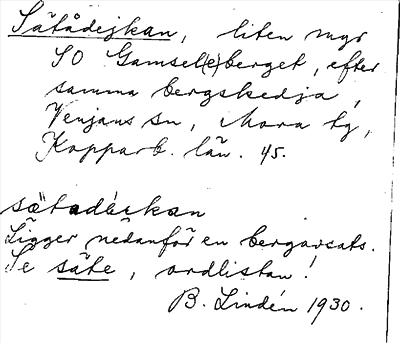 Sätådejkan, liten myr
SO Gamsel(e)berget, efter
samma bergskedja,
Venjans sn, Mora tg,
Kopparb. län. 45.
sätadéikan
Ligger nedanför en bergavsats.
Se säte, ordlistan!
B. Lindén 1930.